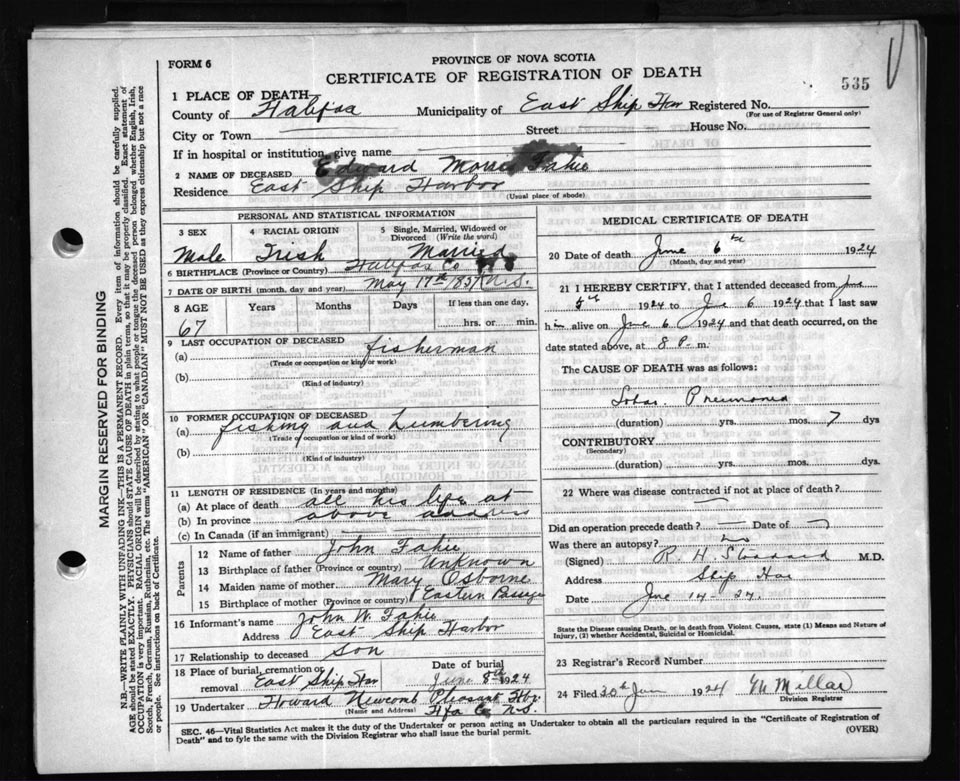 FORM 6
PROVINCE OF NOVA SCOTIA
CERTIFICATE OF REGISTRATION OF DEATH
535
1 PLACE OF DEATH
County of Halifax Municipality of East Ship Har Registered No.
(For use of Registrar General only)
City or Town Street House No.
If in hospital or institution, give name
2 NAME OF DECEASED Edward Fakie
Residence East Ship Harbor
(Usual place of abode)
PERSONAL AND STATISTICAL INFORMATION
3 SEX
Male
4 RACIAL ORIGIN
Irish
5 Single, Married, Widowed or Divorced (Write the word)
Married
6 BIRTHPLACE (Province or Country) Halifax Co N.S.
7 DATE OF BIRTH (month, day, and year) May 17th 1857
8 AGE Years Months Days If less than one day,
67 hrs. or min.
9 LAST OCCUPATION OF DECEASED
(a) fisherman
(Trade or occupation or kind of work)
(b)
(Kind of industry)
10 FORMER OCCUPATION OF DECEASED
(a) fishing and Lumbering
(Trade or occupation or kind of work)
(b)
(Kind of industry)
11 LENGTH OF RESIDENCE (In years and months)
(a) At place of death all his life at
(b) In province above address
(c) In Canada (if an immigrant)
Parents
12 Name of father John Fakie
13 Birthplace of father (Province or country) Unknown
14 Maiden name of mother Mary Osborne
15 Birthplace of mother (Province or country) Eastern Passage
16 Informant's name John W. Fakie
Address East Ship Harbor
17 Relationship to deceased Son
18 Place of burial, cremation or removal East Ship Har
Date of burial
June 8th 1924
19 Undertaker Howard Newcomb Pleasant Hbr
(Name and Address) Hfx Co N.S.
MEDICAL CERTIFICATE OF DEATH
20 Date of death June 6th 1924
(Month, day and year)
21 I HEREBY CERTIFY, that I attended deceased from June
5th 1924 to June 6 1924 that I last saw
him alive on June 6 1924 and that death occurred, on
date stated above, at 8 P. m.
The CAUSE OF DEATH was as follows:
Lobar Pneumonia
(duration) yrs. mos. 7 dys
CONTRIBUTORY
(Secondary)
(duration) yrs. mos. dys.
22 Where was disease contracted if not at place of death?
Did an operation precede death? Date of
Was there an autopsy? no
(Signed) R. H. M.D.
Address Ship Har
Date June 14-24.
State the Disease causing Death, or in death from Violent Causes, state (1) Means and Nature of
Injury, (2) whether Accidental, Suicidal or Homicidal.
23 Registrar's Record Number
24 Filed 30th Jun 1924 M Millar
Division Registrar
SEC. 46—Vital Statistics Act makes it the duty of the Undertaker or person acting as Undertaker to obtain all the particulars required in the "Certificate of Registration of
Death" and to fyle the same with the Division Registrar who shall issue the burial permit.
(OVER)
MARGIN RESERVED FOR BINDING
N.B.—WRITE PLAINLY WITH UNFADING INK—THIS IS A PERMANENT RECORD. Every item of information should be carefully supplied.
AGE should be stated EXACTLY. PHYSICIANS should STATE CAUSE OF DEATH in plain terms, so that it may be properly classified. Exact statement of
OCCUPATION is very important. RACIAL ORIGIN will be described by stating to what people or tongue the deceased person belonged whether English, Irish,
Scotch, French, German, Russian, Ruthenian, etc. The terms "AMERICAN" or "CANADIAN" MUST NOT BE USED as they express citizenship but not a race
or people. See instructions on back of Certificate.